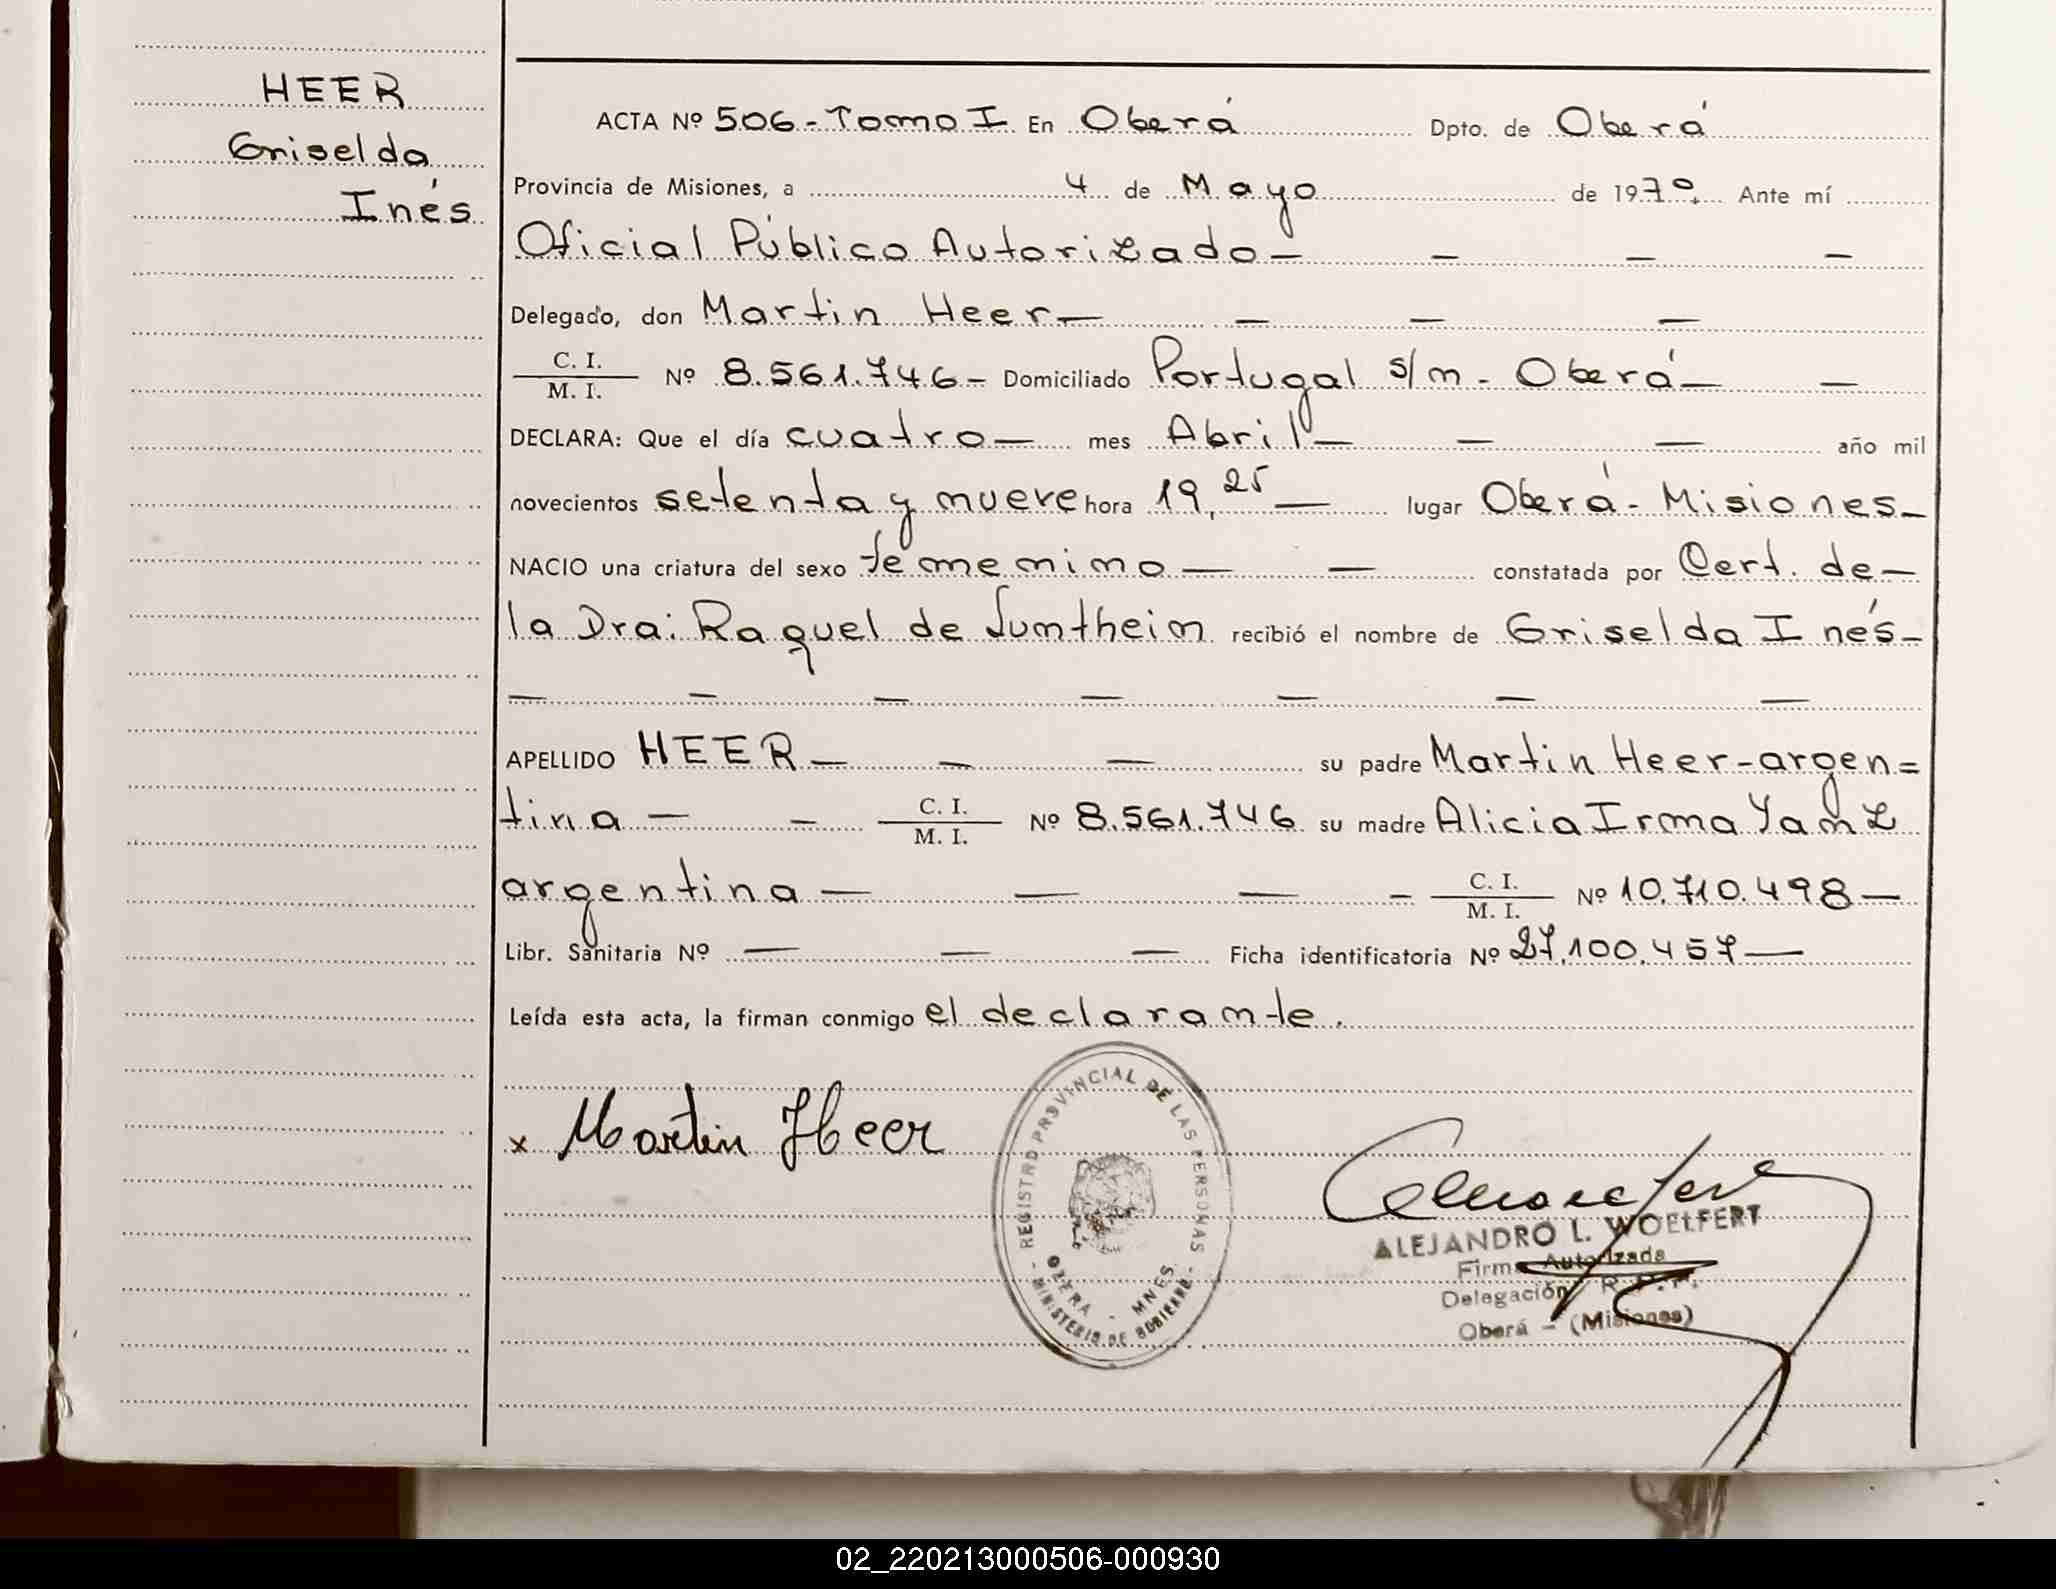 HEER
Griselda
Inés
ACTA Nº 506-Tomo I En Oberá Dpto. de Oberá
Provincia de Misiones, a 4 de Mayo de 1979. Ante mí
Oficial Público Autorizado — — — —
Delegado, don Martin Heer — — — —
C. I.
M. I. Nº 8.561.746- Domiciliado Portugal s/n - Oberá — —
DECLARA: Que el día cuatro — mes Abril — — — año mil
novecientos setenta y nueve hora 19,25 — lugar Oberá - Misiones -
NACIO una criatura del sexo femenino — — constatada por Cert. de —
la Dra: Raquel de Sumtheim recibió el nombre de Griselda Inés -
— — — — — — —
APELLIDO HEER — — — su padre Martin Heer - argen=
tina — — C. I.
M. I. Nº 8.561.746 su madre Alicia Irma Yanz
argentina — — — - C. I.
M. I. Nº 10.710.498 —
Libr. Sanitaria Nº — — — Ficha identificatoria Nº 27.100.457 —
Leída esta acta, la firman conmigo el declarante.
x Martin Heer
- REGISTRO PROVINCIAL DE LAS PERSONAS -
OBERA - MNES
MINISTERIO DE GOBIERNO
ALEJANDRO L. WOELFERT
Firma Autorizada
Delegación R. P. P.
Oberá - (Misiones)
02_220213000506-000930